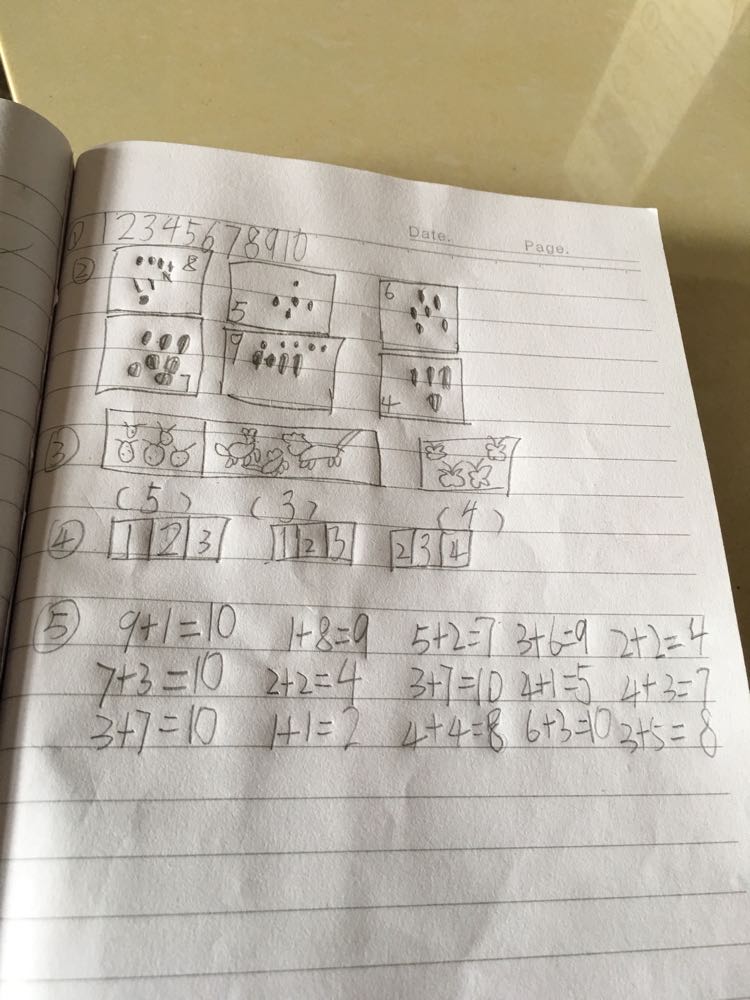 Date. Page.
① 12345678910
② 8 5 6
7 9 4
③
(5) (3) (4)
④ 1 2 3 1 2 3 2 3 4
⑤ 9+1=10 1+8=9 5+2=7 3+6=9 2+2=4
7+3=10 2+2=4 3+7=10 4+1=5 4+3=7
3+7=10 1+1=2 4+4=8 6+3=10 3+5=8